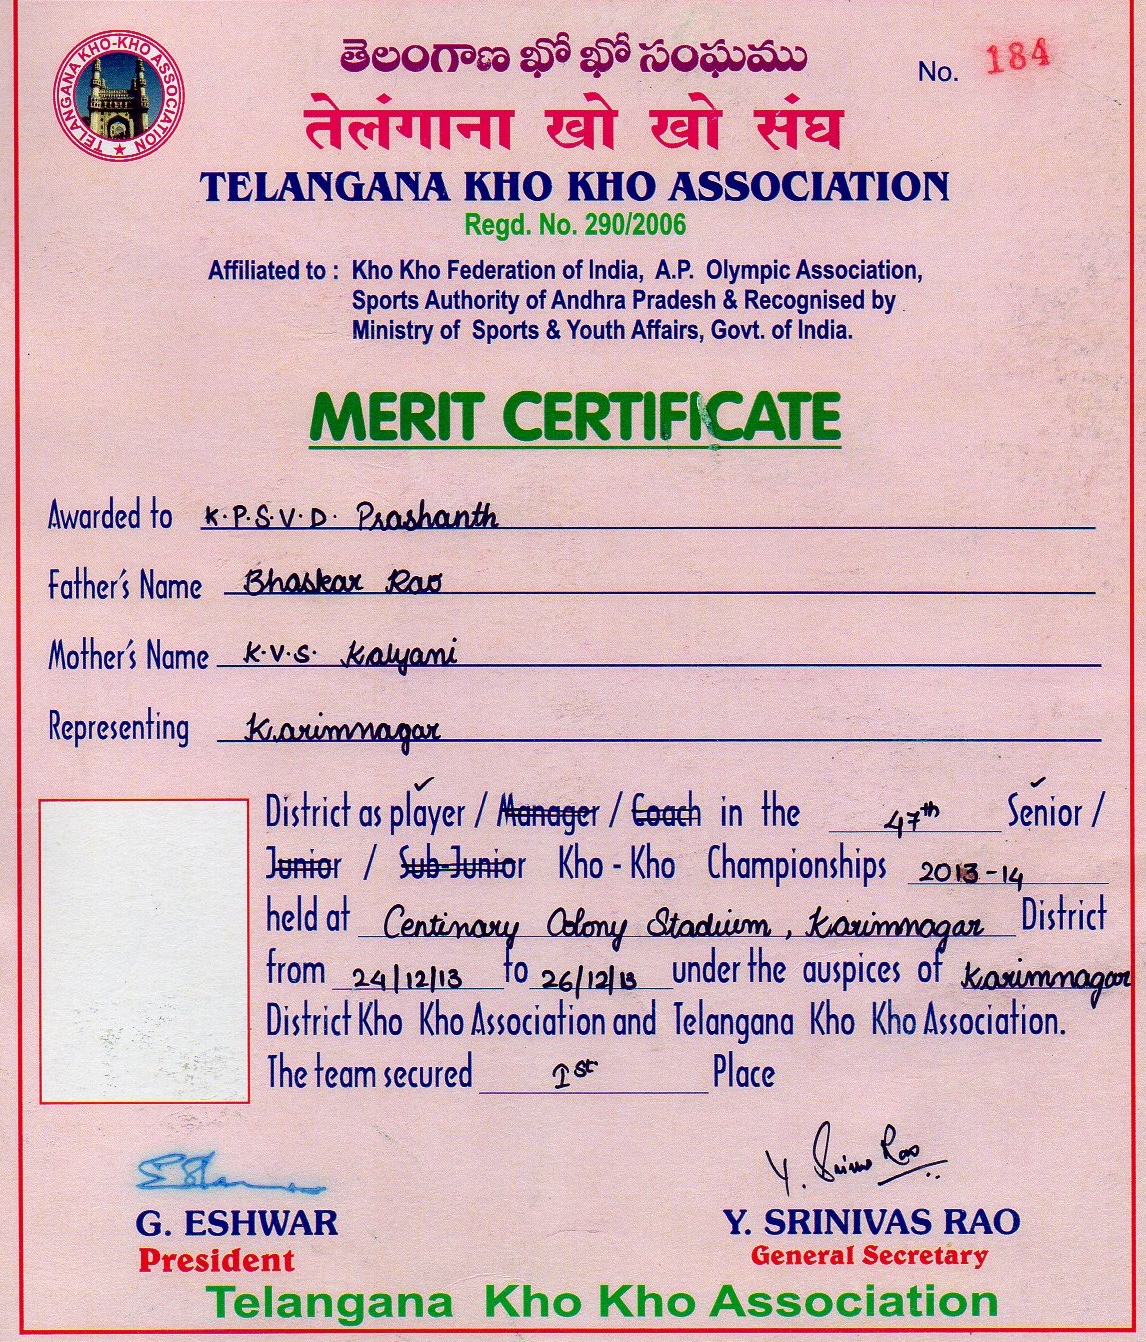 TELANGANA KHO-KHO ASSOCIATION
తెలంగాణ ఖో ఖో సంఘము
No. 184
तेलंगाना खो खो संघ
TELANGANA KHO KHO ASSOCIATION
Regd. No. 290/2006
Affiliated to : Kho Kho Federation of India, A.P. Olympic Association,
Sports Authority of Andhra Pradesh & Recognised by
Ministry of Sports & Youth Affairs, Govt. of India.
MERIT CERTIFICATE
Awarded to K.P.S.V.D. Prashanth
Father's Name Bhaskar Rao
Mother's Name K.V.S. Kalyani
Representing Karimnagar
District as player / Manager / Coach in the 47th Senior /
Junior / Sub-Junior Kho - Kho Championships 2013-14
held at Centinary Colony Stadium, Karimnagar District
from 24/12/13 to 26/12/13 under the auspices of Karimnagar
District Kho Kho Association and Telangana Kho Kho Association.
The team secured Ist Place
Y. Srinivas Rao
G. ESHWAR
Y. SRINIVAS RAO
President
General Secretary
Telangana Kho Kho Association